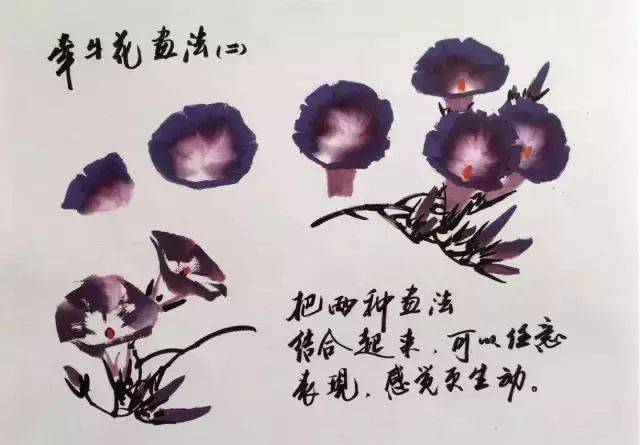 牵牛花画法(二)
把两种画法
结合起来，可以任意
表现，感觉更生动。